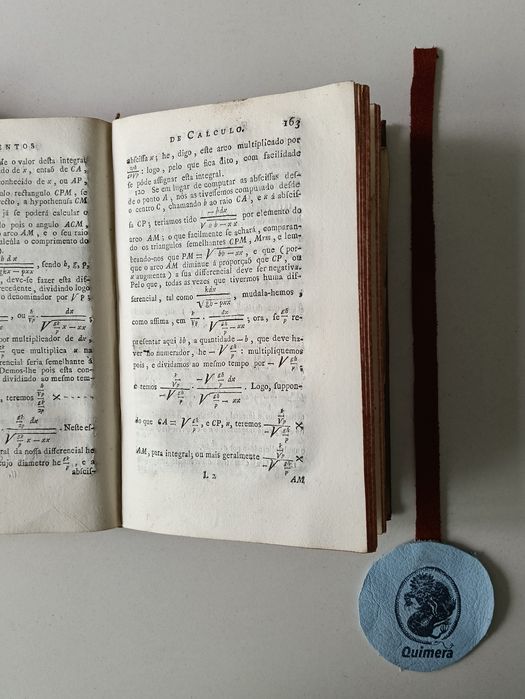 ENTOS
o valor desta integral,
do de x, entaõ de CA,
onhecido de x, ou AP,
ulo rectangulo CPM, se
recto, a hypothenusa CM.
já se poderá calcular o
pois o angulo ACM,
o arco AM, e o seu raio
alcúla o comprimento do
b dx / √ghx - pxx, sendo h, g, p,
, deve-se fazer esta dis-
recedente, dividindo logo
o denominador por √p;
, ou k/√p . dx / √(gh/p x - xx)
por multiplicador de dx,
que multiplica x na
erencial seria semelhante á
Demos-lhe pois esta con-
dividindo ao mesmo tem-
teremos k/√p / gh/2p ×
gh/2p dx / √(gh/p x - xx). Neste es-
ral da nossa differencial he
cujo diametro he gh/p, e a
abscis-
DE CALCULO. 163
abscissa x; he, digo, este arco multiplicado por
: logo, pelo que fica dito, com facilidade
se póde assignar esta integral.
120 Se em lugar de computar as abscissas des-
de o ponto A, nós as tivessemos computado desde
o centro C, chamando b ao raio CA, e x á abscis-
sa CP; teriamos tido -bdx / √bb - xx por elemento do
arco AM; o que facilmente se achará, comparan-
do os triangulos semelhantes CPM, Mrm, e lem-
brando-nos que PM = √bb - xx, e que (por-
que o arco AM diminue á proporçaõ que CP, ou
x augmenta) a sua differencial deve ser negativa.
Pelo que, todas as vezes que tivermos huma dif-
ferencial, tal como kdx / √gh - pxx, mudala-hemos,
como assima, em k/√p . dx / √(gh/p - xx); ora, se gh/p re-
presentar aqui bb, a quantidade - b, que deve ha-
ver no numerador, he - √gh/p: multipliquemos
pois, e dividamos ao mesmo tempo por - √gh/p,
e temos k/√p / -√gh/p . -√gh/p dx / √(gh/p - xx). Logo, suppon-
do que CA = √gh/p, e CP, x, teremos k/√p / -√gh/p ×
AM, para integral; ou mais geralmente k/√p / -√gh/p ×
L 2
AM
Quimera